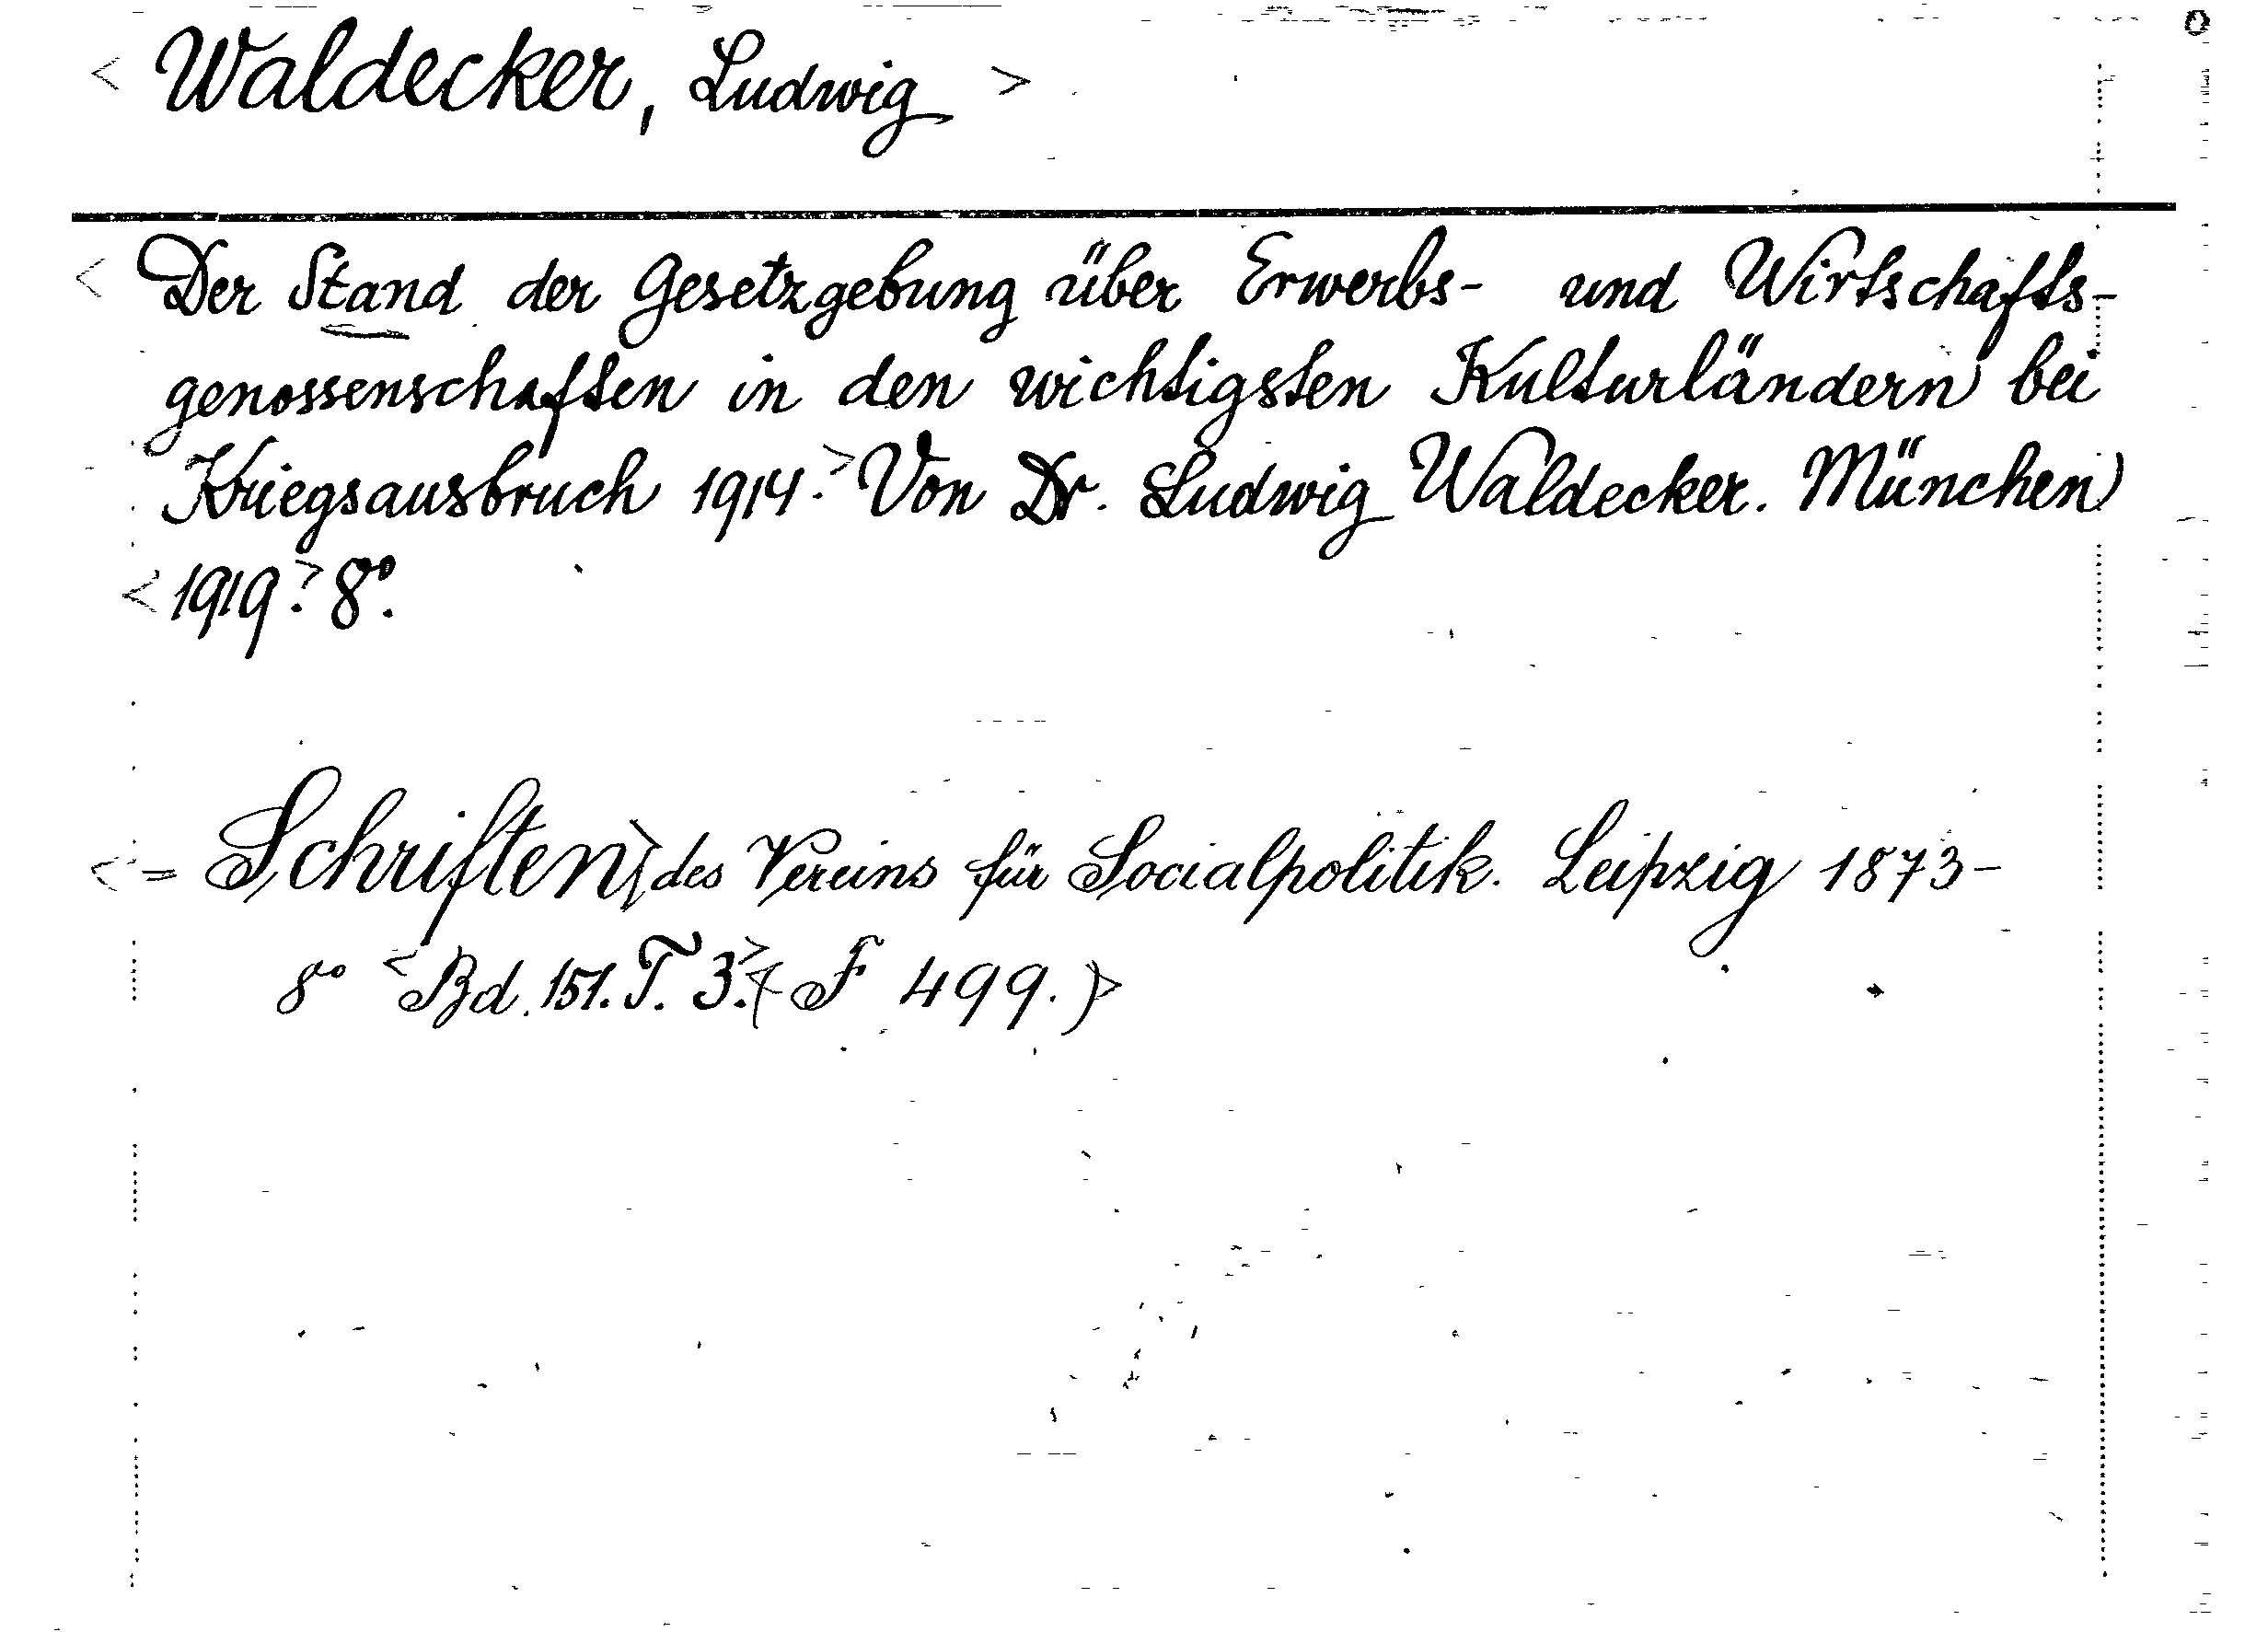 < Waldecker, Ludwig >
< Der Stand der Gesetzgebung über Erwerbs- und Wirtschafts-
genossenschaften in den wichtigsten Kulturländern bei
Kriegsausbruch 1914.> Von Dr. Ludwig Waldecker. München
<1919.> 8°.
< = Schriften> des Vereins für Socialpolitik. Leipzig 1873-
8° <Bd. 151. T. 3.> <(F 499.)>